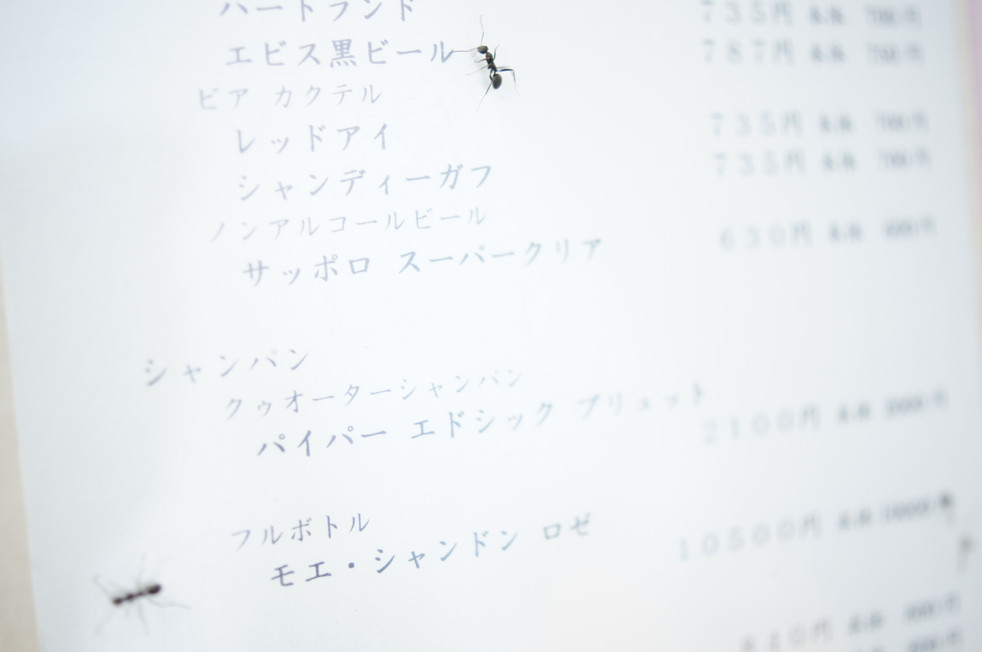 ハートランド 735円 本体 700円
エビス黒ビール 787円 本体 750円
ビア カクテル
レッドアイ 735円 本体 700円
シャンディーガフ 735円 本体 700円
ノンアルコールビール
サッポロ スーパークリア 630円 本体 600円
シャンパン
クゥオーターシャンパン
パイパー エドシック ブリュット 2100円 本体 2000円
フルボトル
モエ・シャンドン ロゼ 10500円 本体 10000円
840円 本体